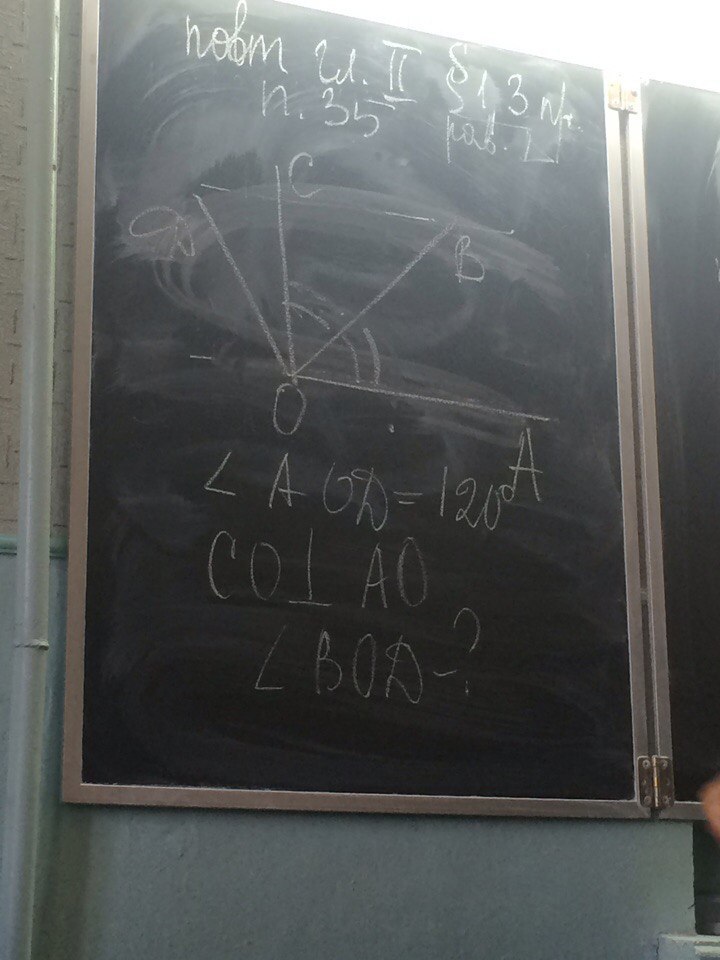 повт гл. II § 1, 3
п. 35
C
D
B
O
A
∠ AOD = 120°
CO ⊥ AO
∠ BOD - ?